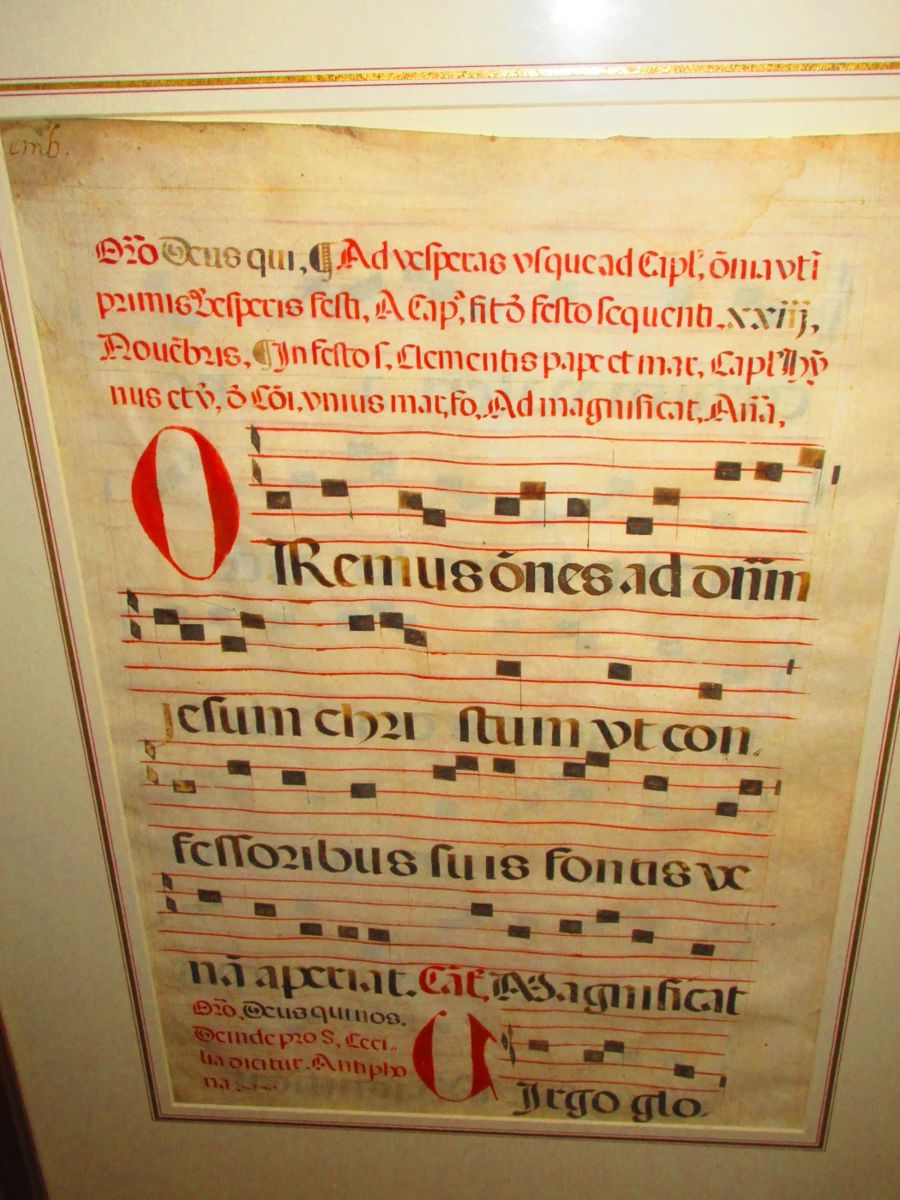 emb.
Or̄o Deus qui, ¶ Ad vesperas vsque ad Capl', ōnia vti
primis Vesperis festi, A Cap', fit ō festo sequenti. xxiij,
Nouēbris, ¶ In festo s, Clementis pape et mar, Capl' Hy
nus et v̄, ō Cōi, vnius mar, fo, Ad magnificat, Añā,
O
Remus ōnes ad dn̄m
jesum chri stum vt con
fessoribus suis fontis ve
nā aperiat. Cāt. Magnificat
Or̄o, Deus qui nos.
Deinde pro S, Ceci
lia dicitur Antipho
na
V
Irgo glo.